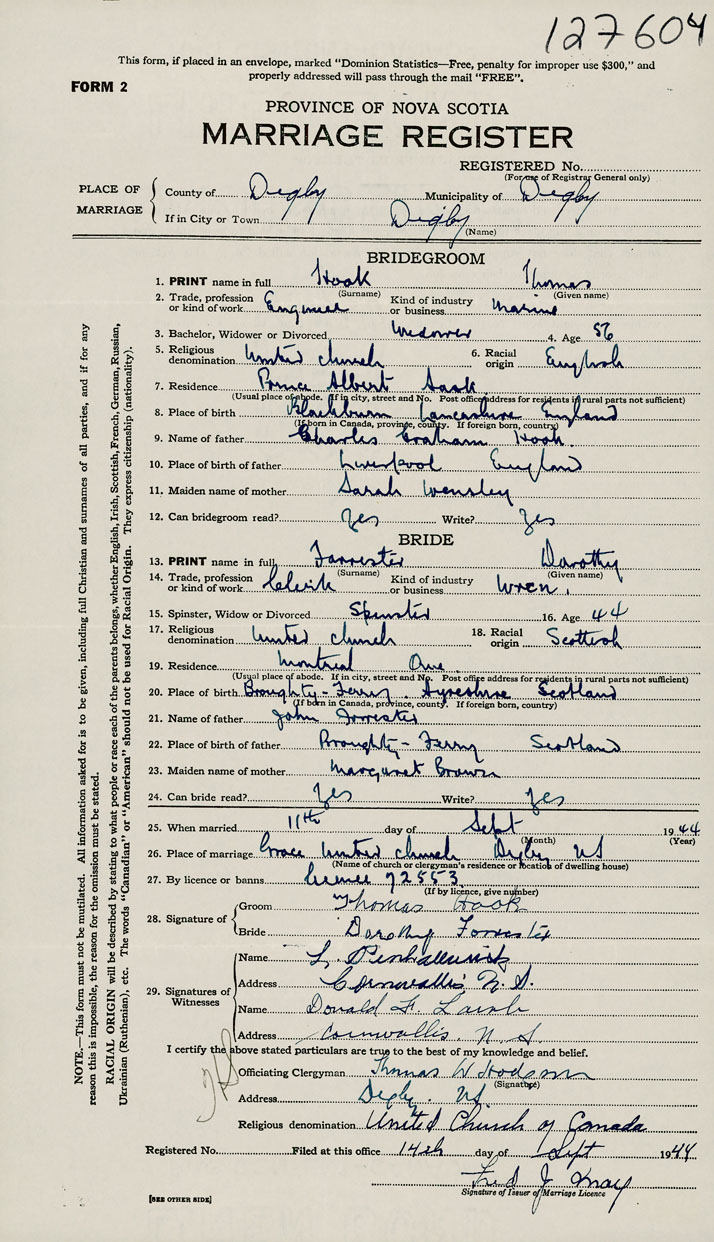 127604
This form, if placed in an envelope, marked "Dominion Statistics—Free, penalty for improper use $300," and
properly addressed will pass through the mail "FREE".
FORM 2
PROVINCE OF NOVA SCOTIA
MARRIAGE REGISTER
REGISTERED No.
(For use of Registrar General only)
PLACE OF MARRIAGE
County of Digby Municipality of Digby
If in City or Town Digby
(Name)
BRIDEGROOM
1. PRINT name in full Hook Thomas
(Surname) (Given name)
2. Trade, profession or kind of work Engineer Kind of industry or business Marine
3. Bachelor, Widower or Divorced Widower 4. Age 56
5. Religious denomination United Church 6. Racial origin English
7. Residence Prince Albert Sask
(Usual place of abode. If in city, street and No. Post office address for residents in rural parts not sufficient)
8. Place of birth Blackburn Lancashire England
(If born in Canada, province, county. If foreign born, country)
9. Name of father Charles Graham Hook.
10. Place of birth of father Liverpool England
11. Maiden name of mother Sarah Wensley
12. Can bridegroom read? Yes Write? Yes
BRIDE
13. PRINT name in full Forrester Dorothy
(Surname) (Given name)
14. Trade, profession or kind of work Clerk Kind of industry or business Wren.
15. Spinster, Widow or Divorced Spinster 16. Age 44
17. Religious denomination United Church 18. Racial origin Scottish
19. Residence Montreal Que
(Usual place of abode. If in city, street and No. Post office address for residents in rural parts not sufficient)
20. Place of birth Broughty-Ferry. Ayreshire Scotland
(If born in Canada, province, county. If foreign born, country)
21. Name of father John Forrester
22. Place of birth of father Broughty-Ferry Scotland
23. Maiden name of mother Margaret Brown
24. Can bride read? Yes Write? Yes
25. When married 11th day of Sept 1944
(Month) (Year)
26. Place of marriage Grace United Church Digby NS
(Name of church or clergyman's residence or location of dwelling house)
27. By licence or banns licence 72553
(If by licence, give number)
28. Signature of
Groom Thomas Hook
Bride Dorothy Forrester
29. Signatures of Witnesses
Name L.
Address Cornwallis N.S.
Name Donald F. Lamb
Address Cornwallis, N.S.
I certify the above stated particulars are true to the best of my knowledge and belief.
Officiating Clergyman Thomas W Hodgson
(Signature)
Address Digby. NS.
Religious denomination United Church of Canada
Registered No. Filed at this office 14th day of Sept 1944
Fred J
Signature of Issuer of Marriage Licence
[SEE OTHER SIDE]
NOTE.—This form must not be mutilated. All information asked for is to be given, including full Christian and surnames of all parties, and if for any
reason this is impossible, the reason for the omission must be stated.
RACIAL ORIGIN will be described by stating to what people or race each of the parents belongs, whether English, Irish, Scottish, French, German, Russian,
Ukrainian (Ruthenian), etc. The words "Canadian" or "American" should not be used for Racial Origin. They express citizenship (nationality).